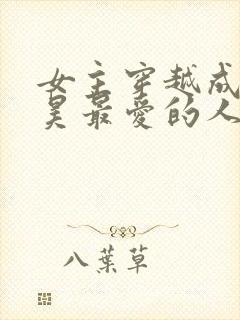 女主穿越成
昊最爱的人
八葉草